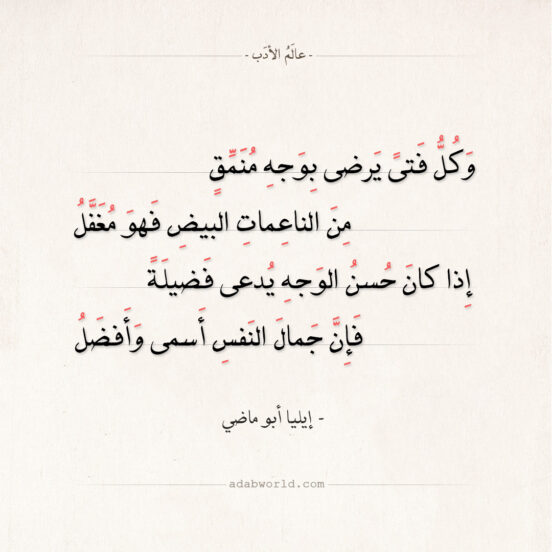 - عالَمُ الأدَب -
وَكُلُّ فَتىً يَرضى بِوَجهِ مُنَمِّقٍ
مِنَ الناعِماتِ البيضِ فَهوَ مُغَفَّلُ
إِذا كانَ حُسنُ الوَجهِ يُدعى فَضيلَةً
فَإِنَّ جَمالَ النَفسِ أَسمى وَأَفضَلُ
- إيليا أبو ماضي
adabworld.com